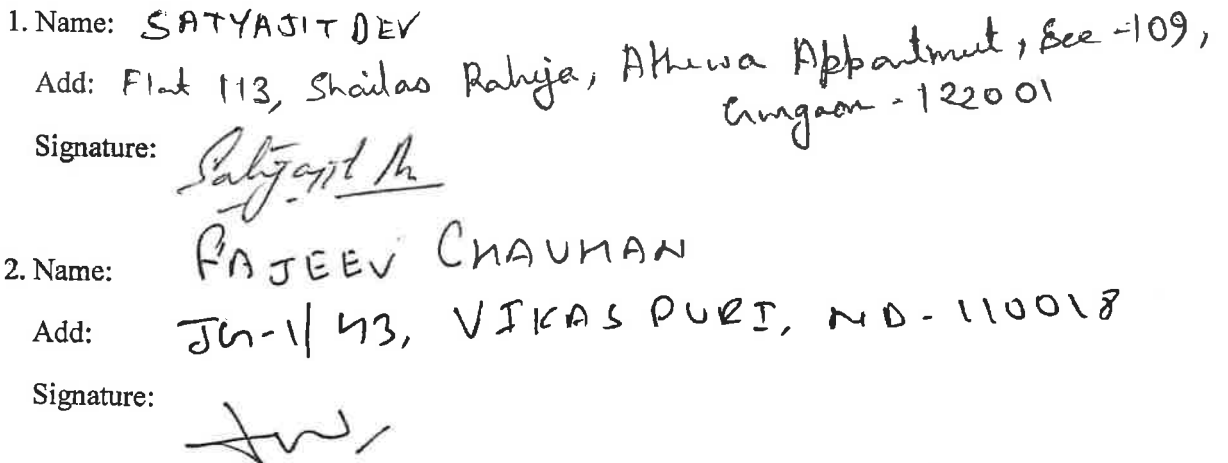 1. Name: SATYAJIT DEV
Add: Flat 113, Shailas Raheja, Athewa Appartment, Sec-109,
Gurgaon - 122001
Signature: Satyajit
2. Name: RAJEEV CHAUHAN
Add: JG-1/43, VIKAS PURI, ND-110018
Signature: